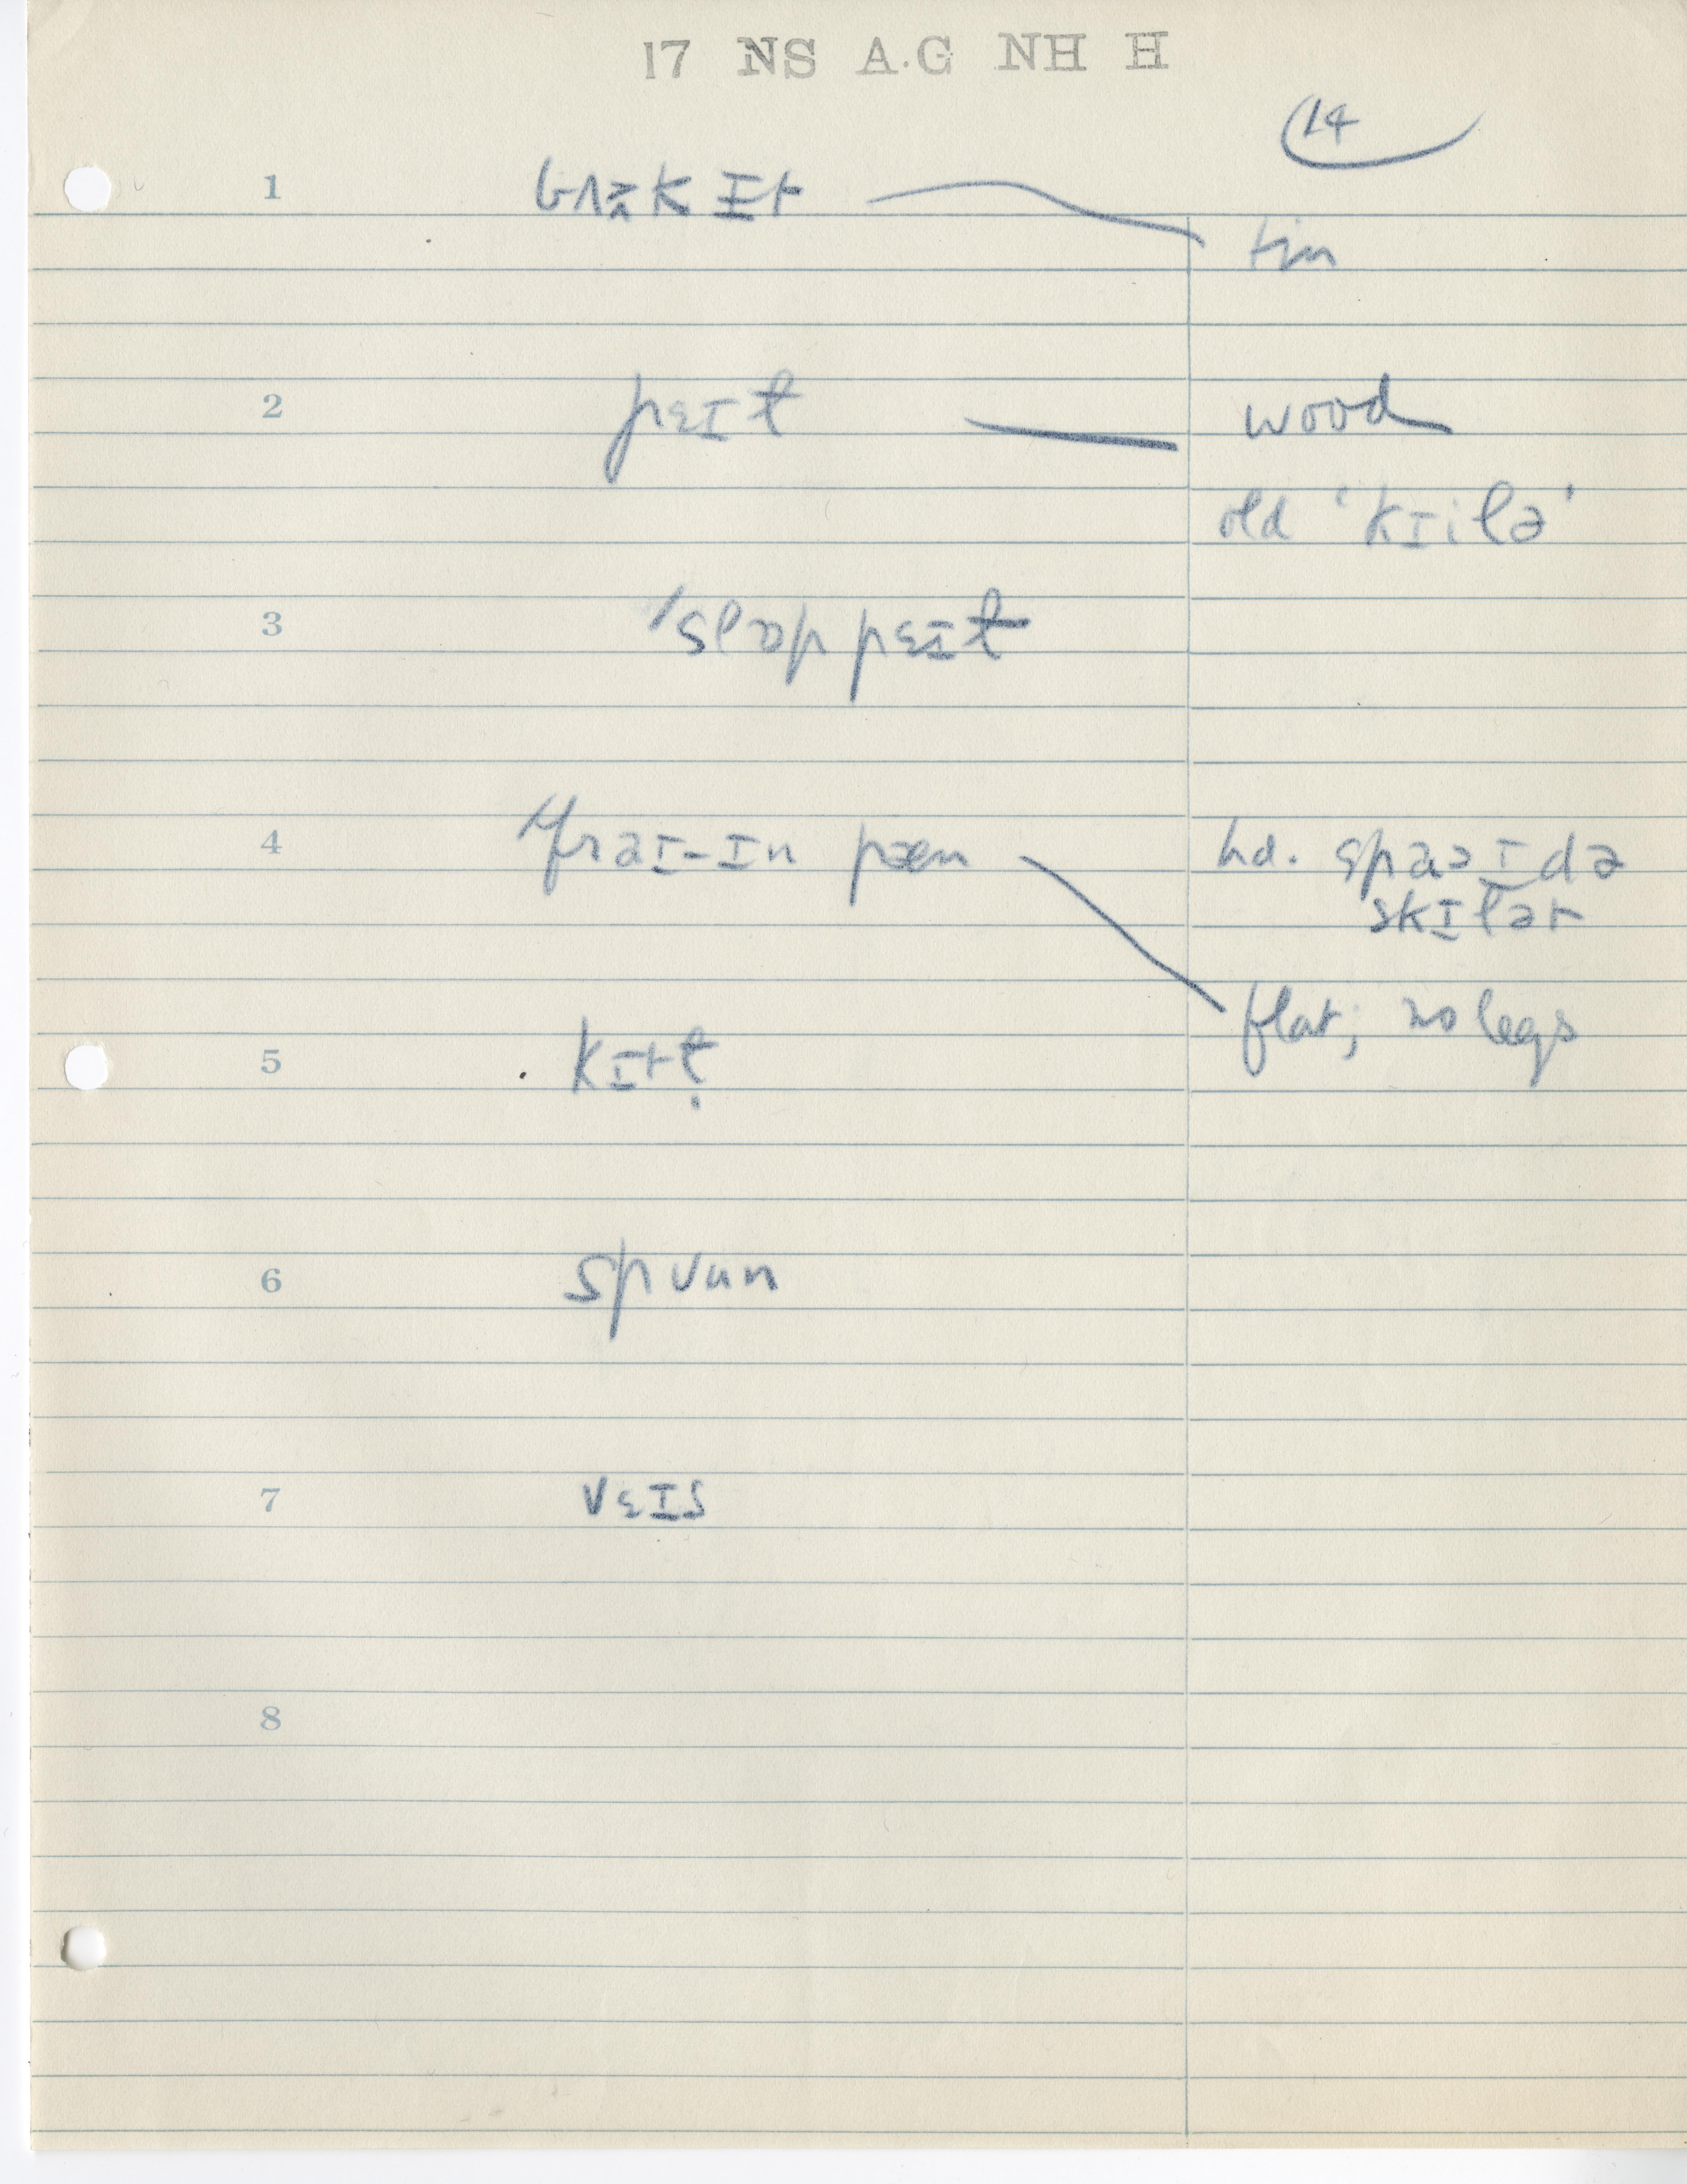 17 NS A.G NH H
14
1 bʌkɪt
tin
2 pɛɪɫ
wood
old 'kɪilə'
3 'slɒp pɛɪɫ
4 'fraɪ-ɪn pæn
hd. spaəɪdə
skɪlət
flat; no legs
5 kɪtɫ̣
6 spʊun
7 vɛɪs
8